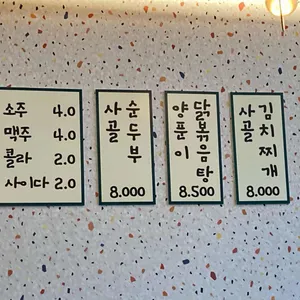 소주 4.0
맥주 4.0
콜라 2.0
사이다 2.0
사골
순두부
8.000
양푼이
닭볶음탕
8.500
사골
김치찌개
8.000